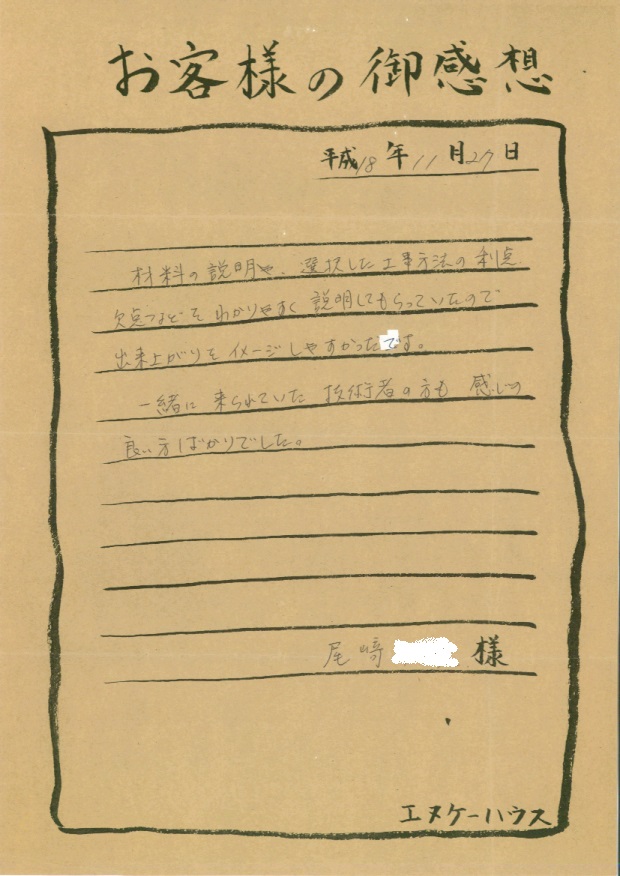 お客様の御感想
平成18年11月27日
材料の説明や、選択した工事方法の利点
欠点などをわかりやすく説明してもらっていたので
出来上がりをイメージしやすかったです。
一緒に来られていた技術者の方も感じの
良い方ばかりでした。
尾﨑 様
エヌケーハウス